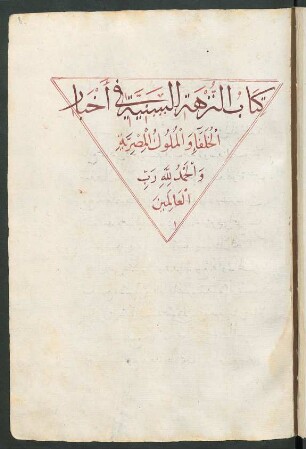 كتاب النزهة السنية في أخبار
الخلفا والملوك المصرية
والحمد لله رب
العالمين